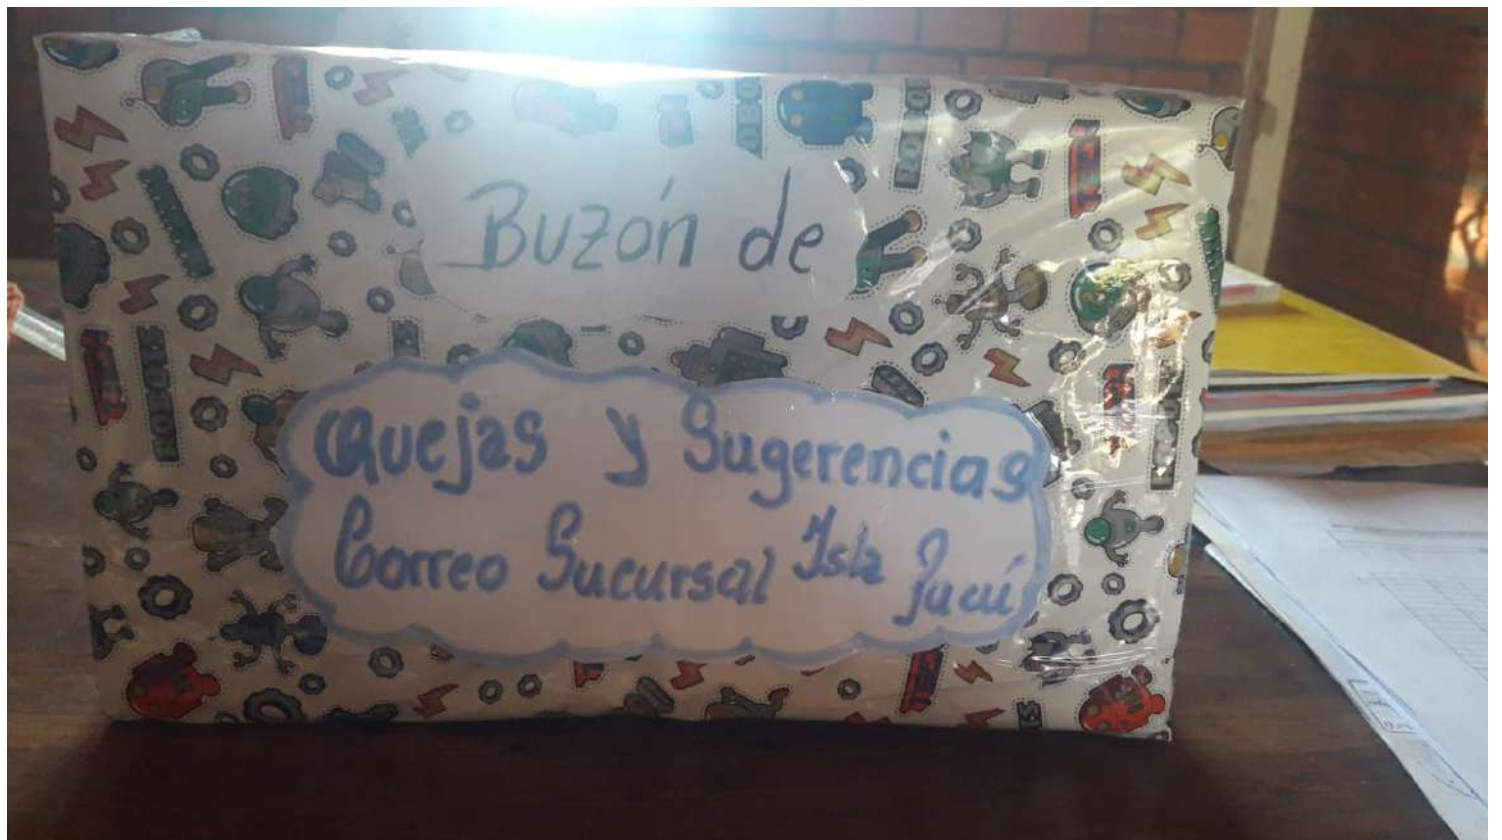 Buzón de
Quejas y Sugerencias
Correo Sucursal Isla Pucú